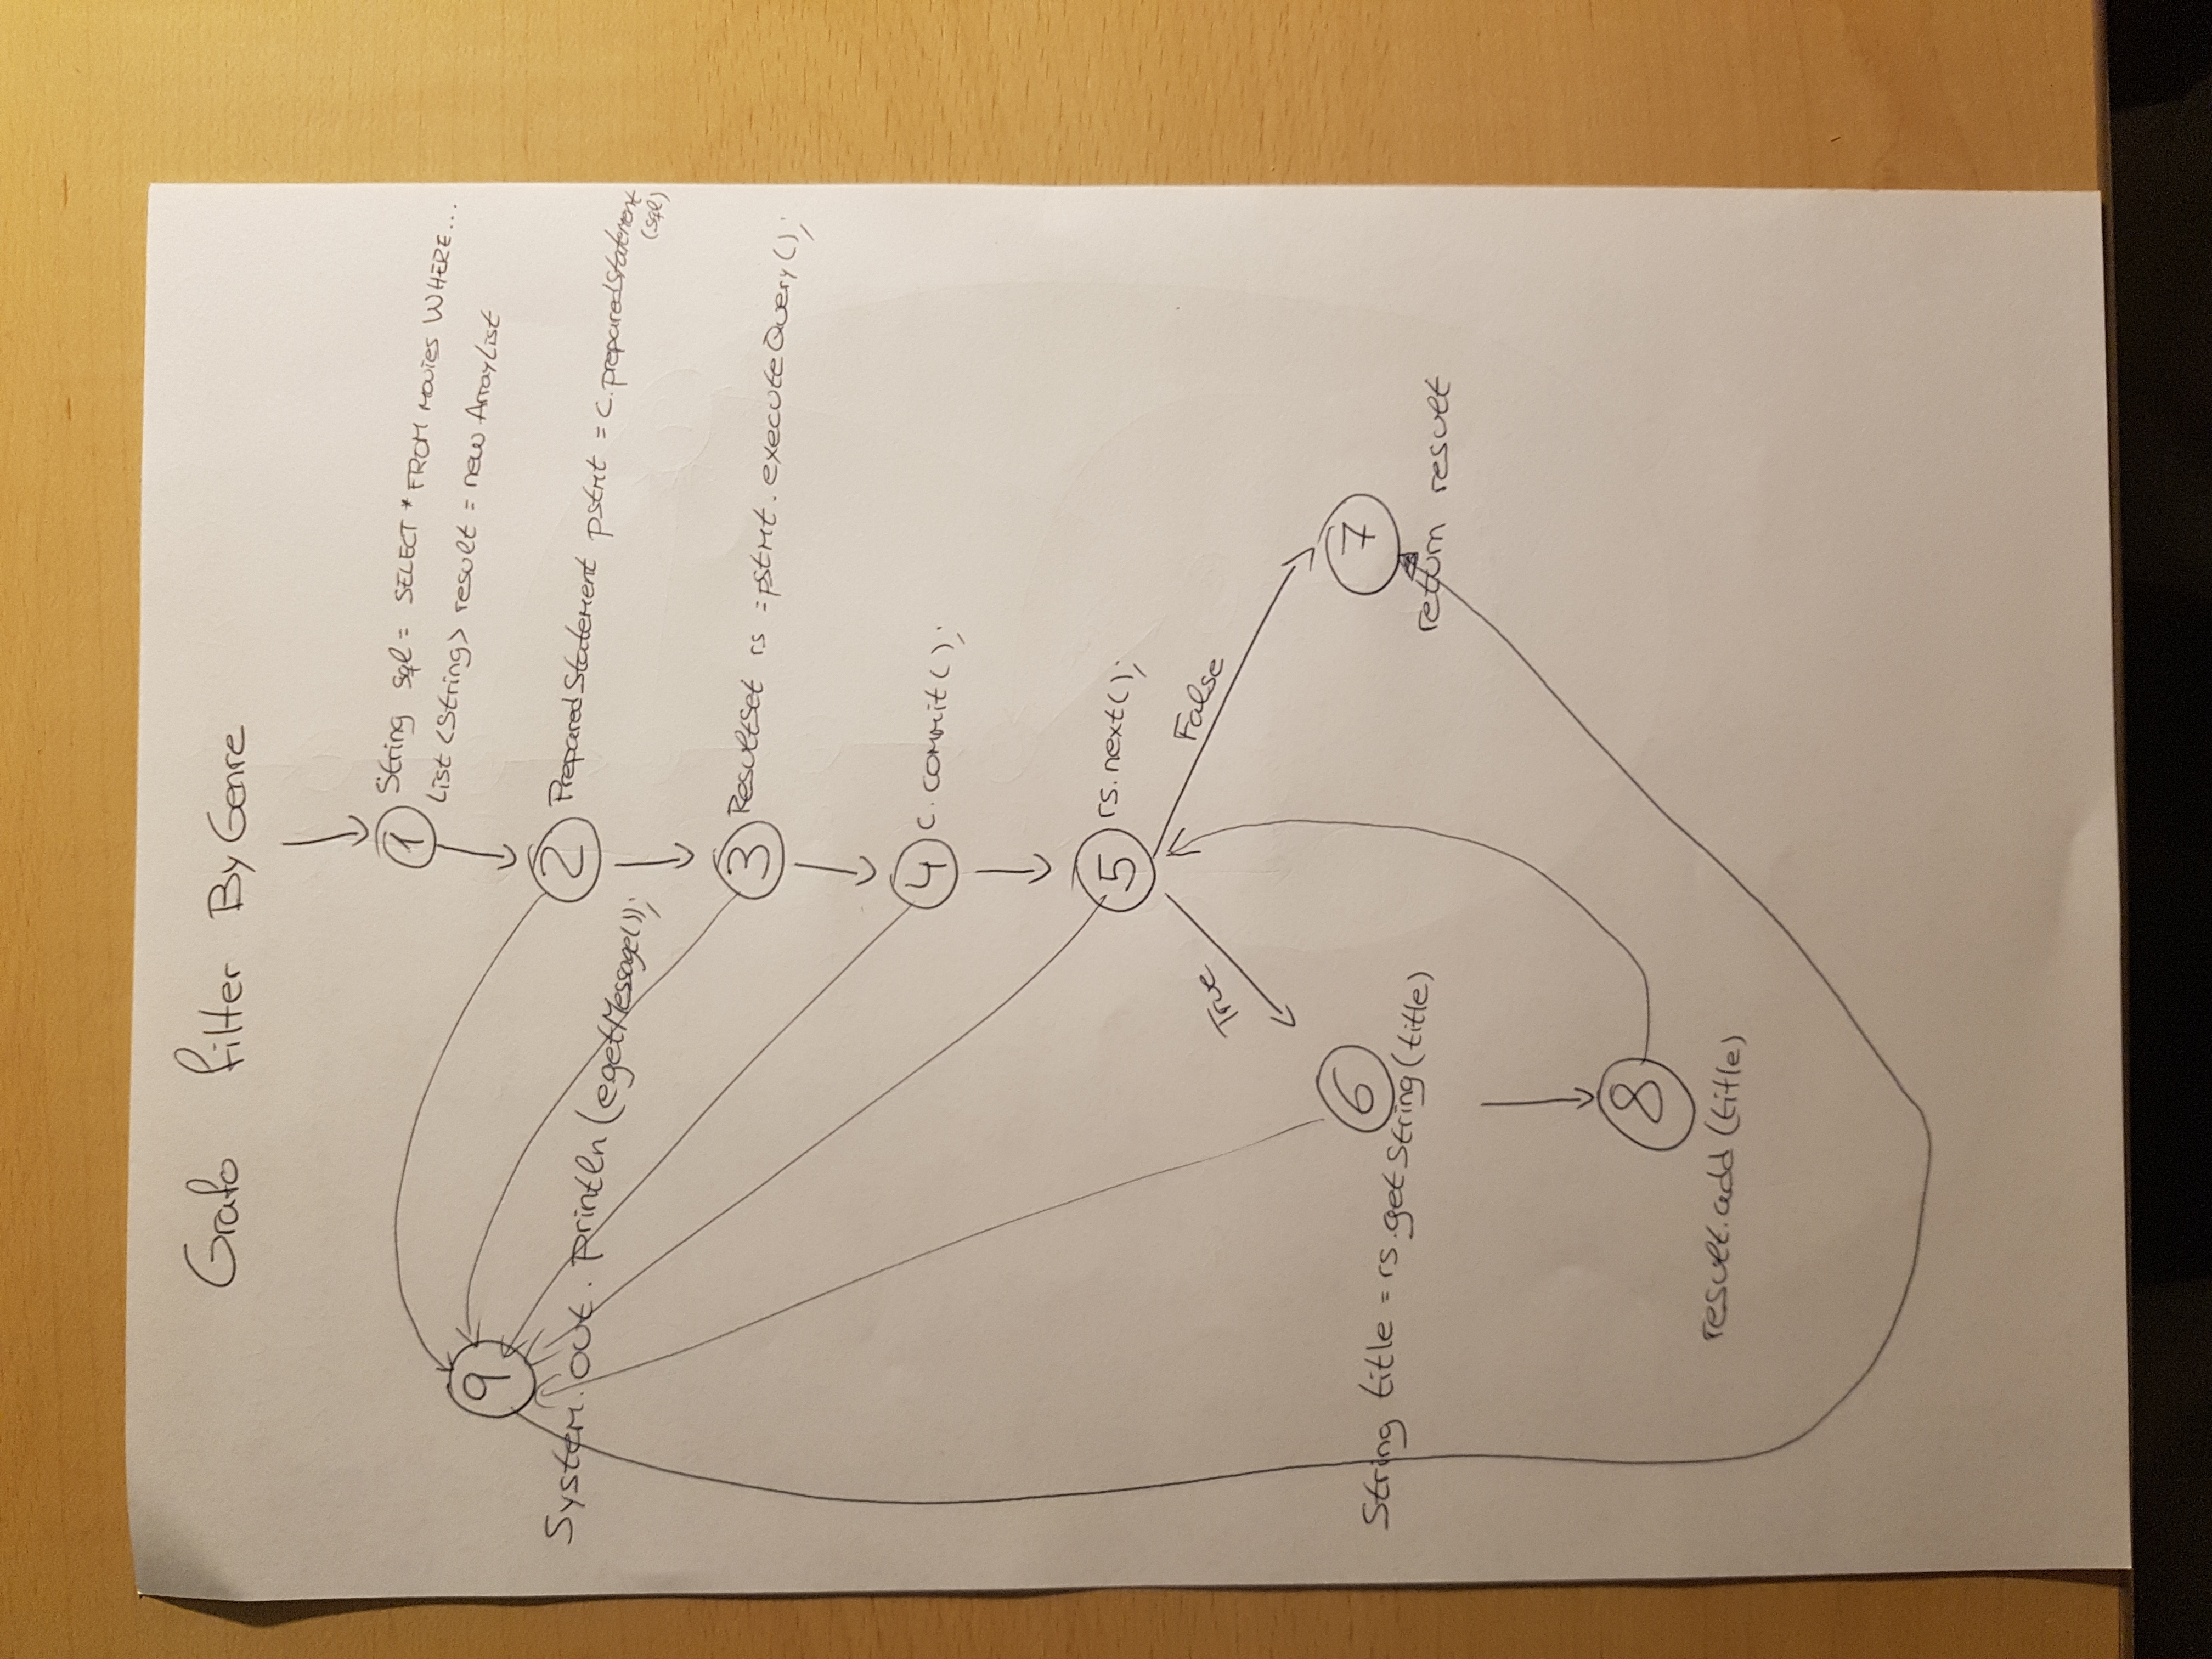 Grafo filter By Genre
1 String sql = SELECT * FROM movies WHERE...
List <String> result = new ArrayList
9
System.out.println(egetMessage());
2 PreparedStatement pstmt = c.preparedStatement
(sql)
3 ResultSet rs = pstmt.executeQuery();
4 c.commit();
5 rs.next();
True
False
6
String title = rs.getString(title)
7
return result
8
result.add(title)